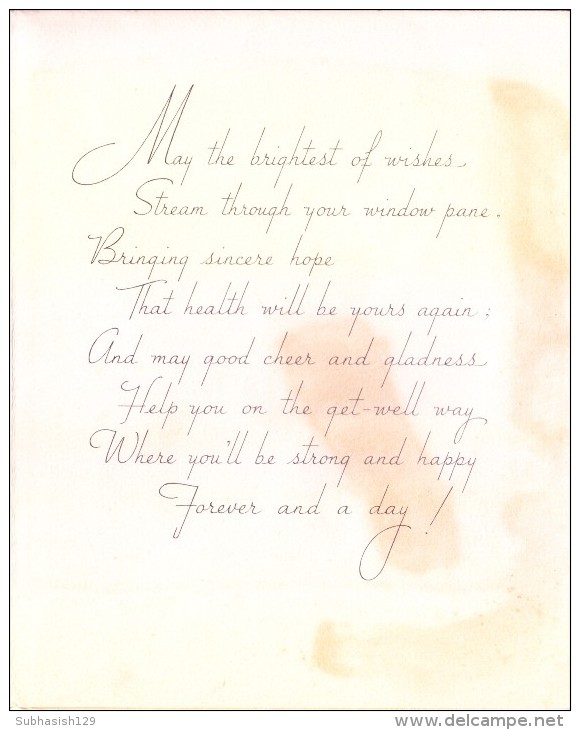 May the brightest of wishes
Stream through your window pane.
Bringing sincere hope
That health will be yours again;
And may good cheer and gladness
Help you on the get-well way
Where you'll be strong and happy
Forever and a day!
Subhasish129
www.delcampe.net